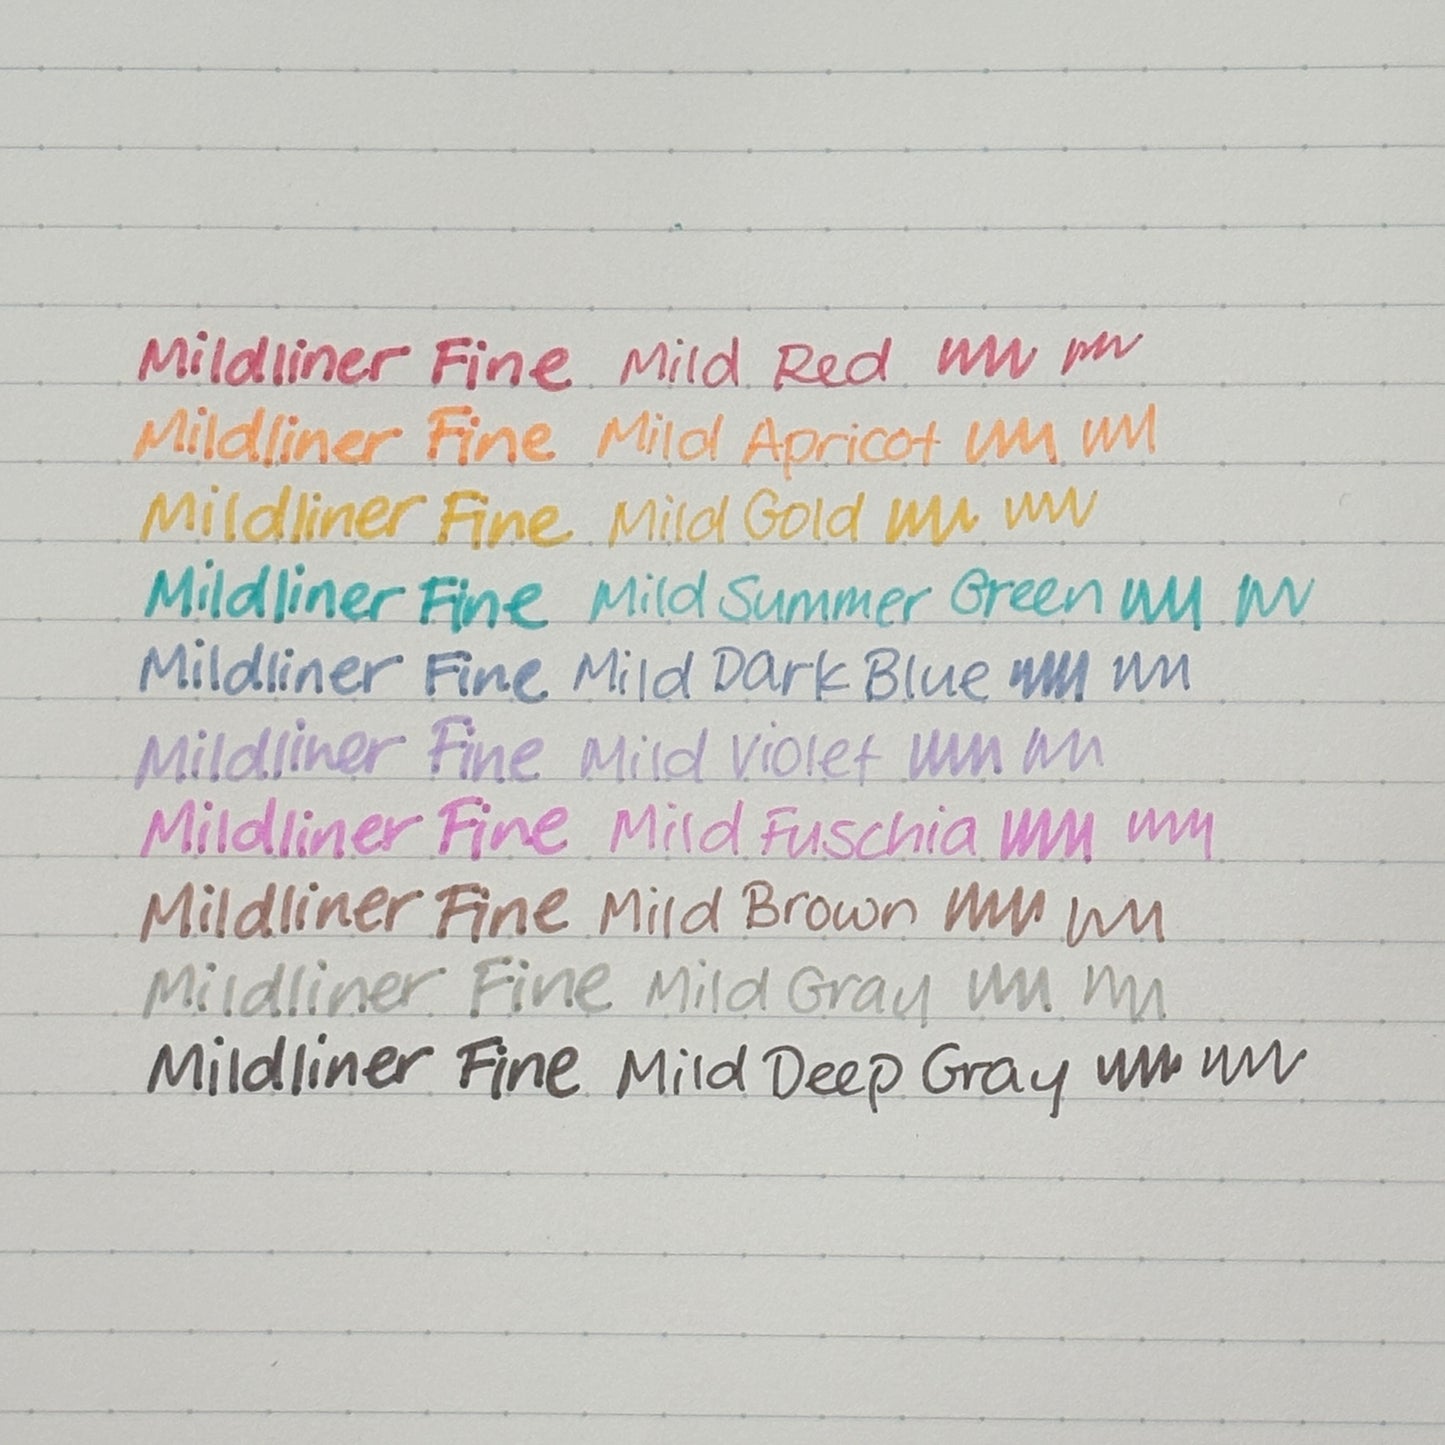 Mildliner Fine Mild Red
Mildliner Fine Mild Apricot
Mildliner Fine Mild Gold
Mildliner Fine Mild Summer Green
Mildliner Fine Mild Dark Blue
Mildliner Fine Mild Violet
Mildliner Fine Mild Fuschia
Mildliner Fine Mild Brown
Mildliner Fine Mild Gray
Mildliner Fine Mild Deep Gray